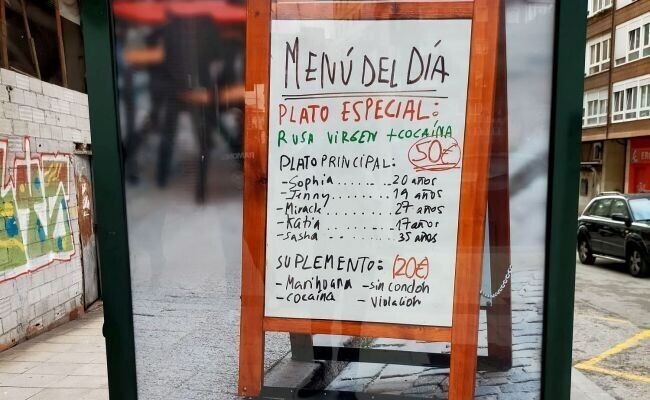 MENÚ DEL DÍA
PLATO ESPECIAL:
RUSA VIRGEN + COCAÍNA
50€
PLATO PRINCIPAL:
- Sophia ........ 20 años
- Jenny .......... 19 años
- Mirack .......... 27 años
- Katia ............ 17 años
- Sasha ............ 35 años
SUPLEMENTO: 20€
- Marihuana - sin condón
- cocaína - Violación